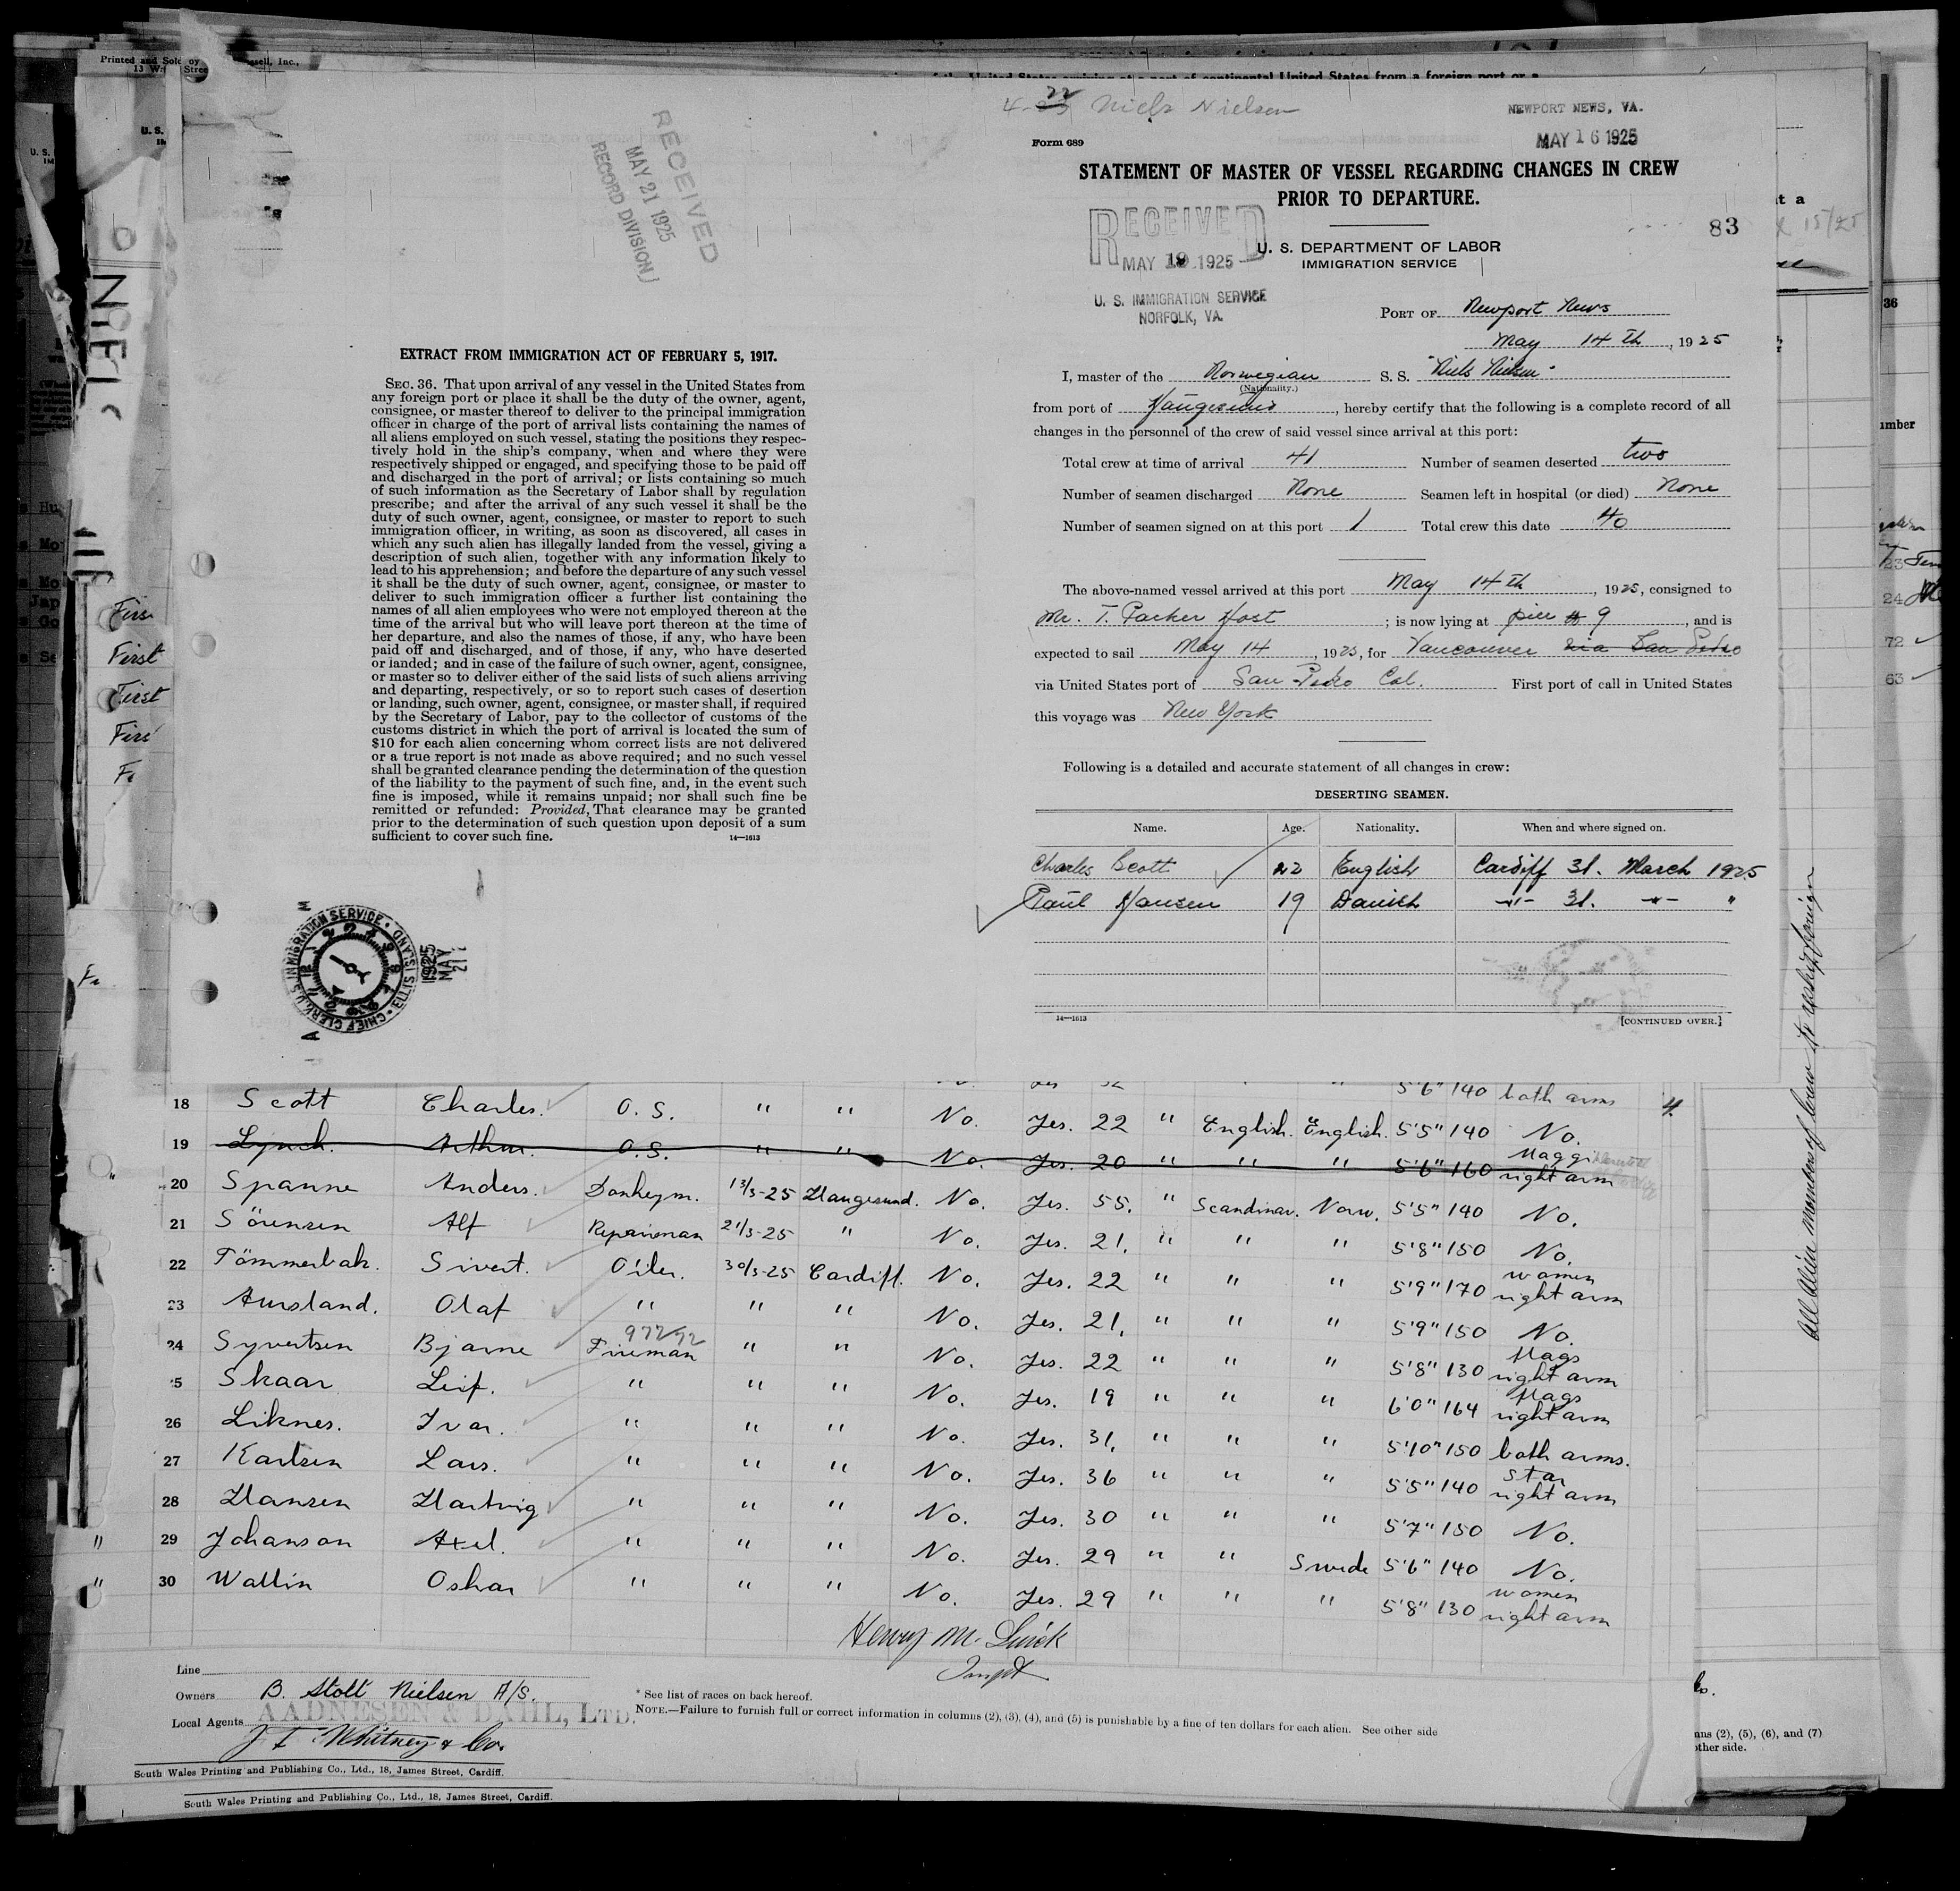 Printed and Sold by
13 W. Stree ssell, Inc.,
U. S.
RECEIVED
MAY 21 1925
RECORD DIVISION
EXTRACT FROM IMMIGRATION ACT OF FEBRUARY 5, 1917.
SEC. 36. That upon arrival of any vessel in the United States from
any foreign port or place it shall be the duty of the owner, agent,
consignee, or master thereof to deliver to the principal immigration
officer in charge of the port of arrival lists containing the names of
all aliens employed on such vessel, stating the positions they respec-
tively hold in the ship's company, when and where they were
respectively shipped or engaged, and specifying those to be paid off
and discharged in the port of arrival; or lists containing so much
of such information as the Secretary of Labor shall by regulation
prescribe; and after the arrival of any such vessel it shall be the
duty of such owner, agent, consignee, or master to report to such
immigration officer, in writing, as soon as discovered, all cases in
which any such alien has illegally landed from the vessel, giving a
description of such alien, together with any information likely to
lead to his apprehension; and before the departure of any such vessel
it shall be the duty of such owner, agent, consignee, or master to
deliver to such immigration officer a further list containing the
names of all alien employees who were not employed thereon at the
time of the arrival but who will leave port thereon at the time of
her departure, and also the names of those, if any, who have been
paid off and discharged, and of those, if any, who have deserted
or landed; and in case of the failure of such owner, agent, consignee,
or master so to deliver either of the said lists of such aliens arriving
and departing, respectively, or so to report such cases of desertion
or landing, such owner, agent, consignee, or master shall, if required
by the Secretary of Labor, pay to the collector of customs of the
customs district in which the port of arrival is located the sum of
$10 for each alien concerning whom correct lists are not delivered
or a true report is not made as above required; and no such vessel
shall be granted clearance pending the determination of the question
of the liability to the payment of such fine, and, in the event such
fine is imposed, while it remains unpaid; nor shall such fine be
remitted or refunded: Provided, That clearance may be granted
prior to the determination of such question upon deposit of a sum
sufficient to cover such fine. 14—1613
CHIEF CLERK, U.S. IMMIGRATION SERVICE ELLIS ISLAND
1925 MAY 21
Niels Nielsen
NEWPORT NEWS, VA.
MAY 16 1925
Form 689
STATEMENT OF MASTER OF VESSEL REGARDING CHANGES IN CREW
PRIOR TO DEPARTURE.
83
RECEIVED
MAY 19 1925
U. S. IMMIGRATION SERVICE
NORFOLK, VA.
U. S. DEPARTMENT OF LABOR
IMMIGRATION SERVICE
PORT OF Newport News
May 14th, 1925
I, master of the Norwegian S. S. "Niels Nielsen"
(Nationality.)
from port of Haugesund, hereby certify that the following is a complete record of all
changes in the personnel of the crew of said vessel since arrival at this port:
Total crew at time of arrival 41 Number of seamen deserted two
Number of seamen discharged None Seamen left in hospital (or died) None
Number of seamen signed on at this port 1 Total crew this date 40
The above-named vessel arrived at this port May 14th, 1925, consigned to
Mr. T. Parker Host; is now lying at pier # 9, and is
expected to sail May 14, 1925, for Vancouver via San Pedro
via United States port of San Pedro Cal. First port of call in United States
this voyage was New York
Following is a detailed and accurate statement of all changes in crew:
DESERTING SEAMEN.
Name. Age. Nationality. When and where signed on.
Charles Scott 22 English Cardiff 31. March 1925
Paul Hansen 19 Danish -"- 31. -"- "
14—1613 [CONTINUED OVER.]
First
First
First
5'6" 140 both arms
18 Scott Charles. O. S. " " No. Yes. 22 " English. English. 5'5" 140 No.
19 Lynch. Arthur. O.S. " " No. Yes. 20 " " " 5'6" 160 right arm
20 Spanne Anders. Donkeym. 13/3-25 Haugesund. No. Yes. 55. " Scandinav. Norw. 5'5" 140 No.
21 Sörensen Alf Repairman 21/3-25 " No. Yes. 21. " " " 5'8" 150 No.
22 Tömmerbak. Sivert. Oiler. 30/3-25 Cardiff. No. Yes. 22 " " " 5'9" 170 women right arm
23 Aursland. Olaf " " " No. Yes. 21. " " " 5'9" 150 No.
24 Syvertsen Bjarne Fireman " " No. Yes. 22 " " " 5'8" 130 flags right arm
25 Skaar Leif. " " " No. Yes. 19 " " " 6'0" 164 flags right arm
26 Liknes. Ivar. " " " No. Yes. 31. " " " 5'10" 150 both arms.
27 Karlsen Lars. " " " No. Yes. 36 " " " 5'5" 140 star right arm
28 Hansen Hartvig " " " No. Yes. 30 " " " 5'7" 150 No.
" 29 Johanson Axel. " " " No. Yes. 29 " " Swede 5'6" 140 No.
" 30 Wallin Oskar " " " No. Yes. 29 " " " 5'8" 130 women right arm
All Alien members of crew to reship foreign
Line
Owners B. Stolt Nielsen A/S.
Local Agents AADNESEN & DAHL, LTD.
J F Whitney & Co.
* See list of races on back hereof.
NOTE.—Failure to furnish full or correct information in columns (2), (3), (4), and (5) is punishable by a fine of ten dollars for each alien. See other side
South Wales Printing and Publishing Co., Ltd., 18, James Street, Cardiff.
South Wales Printing and Publishing Co., Ltd., 18, James Street, Cardiff.
(2), (5), (6), and (7)
other side.